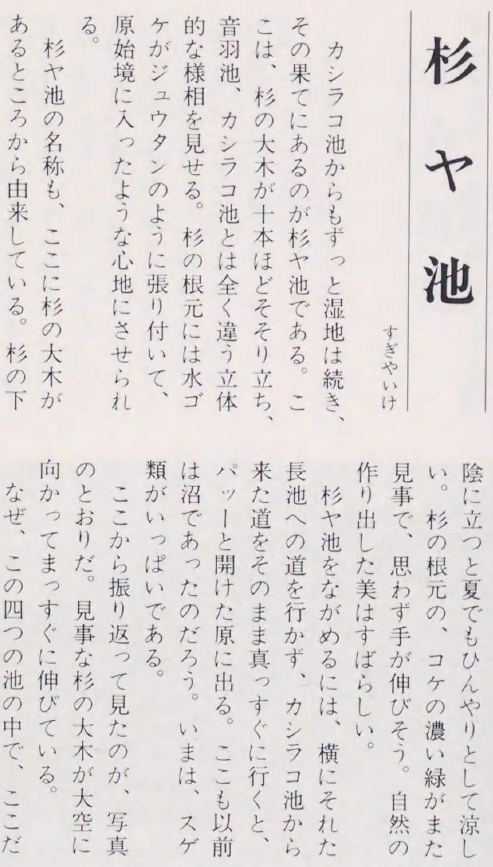 杉ヤ池
すぎやいけ
カシラコ池からもずっと湿地は続き、
その果てにあるのが杉ヤ池である。こ
こは、杉の大木が十本ほどそそり立ち、
音羽池、カシラコ池とは全く違う立体
的な様相を見せる。杉の根元には水ゴ
ケがジュウタンのように張り付いて、
原始境に入ったような心地にさせられ
る。
杉ヤ池の名称も、ここに杉の大木が
あるところから由来している。杉の下
陰に立つと夏でもひんやりとして涼し
い。杉の根元の、コケの濃い緑がまた
見事で、思わず手が伸びそう。自然の
作り出した美はすばらしい。
杉ヤ池をながめるには、横にそれた
長池への道を行かず、カシラコ池から
来た道をそのまま真っすぐに行くと、
パッーと開けた原に出る。ここも以前
は沼であったのだろう。いまは、スゲ
類がいっぱいである。
ここから振り返って見たのが、写真
のとおりだ。見事な杉の大木が大空に
向かってまっすぐに伸びている。
なぜ、この四つの池の中で、ここだ